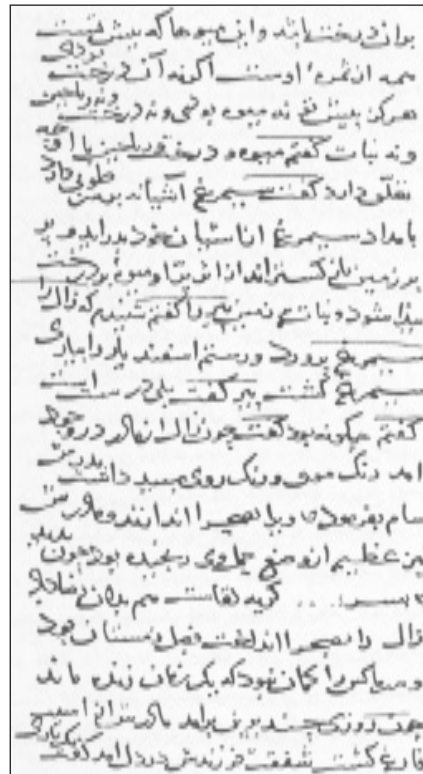 بران درخت باشد و این میوها که پیش تست
همه از ثمره اوست اگر نه آن درخت بودی
هرگز پیش تو نه میوه بودی و نه درخت و نه ریاحین
و نه نبات گفتم میوه و درخت و ریاحین با او چه
تعلق دارد گفت سیمرغ آشیانه بر سر طوبی دارد
بامداد سیمرغ از آشیان خود بدر آید و پر
بر زمین باز گستراند از اثر پر او میوه بر درخت
پیدا شود و نبات بر زمین پیر را گفتم شنیدم که زال را
سیمرغ پرورد و رستم اسفندیار را بیاری
سیمرغ کشت پیر گفت بلی درست است
گفتم چگونه بود گفت چون زال از مادر در وجود
امد رنگ موی و رنگ روی سپید داشت پدرش
سام بفرمود که ویرا بصحرا اندازند و مادرش
نیز عظیم از وضع حمل وی رنجیده بود چون بدید
که پسر ... کریه لقاست هم بدان رضا داد
زال را بصحرا انداخت فصل زمستان بود
و سرما کس را گمان نبود که یک زمان زنده ماند
چون روزی چند برین برامد مادرش از اسیب
فارغ گشت شفقت فرزندش در دل امد گفت یکباری